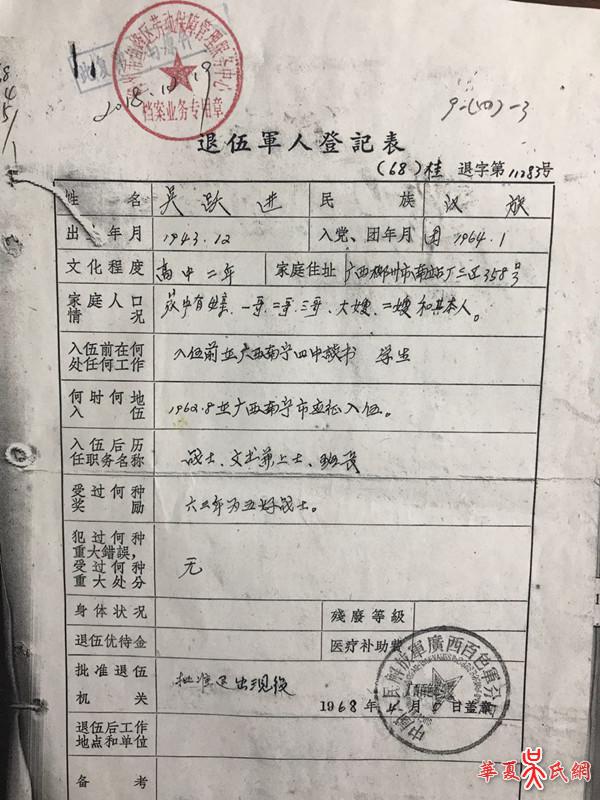 档案业务专用章
2018.10.19
9-(50)-3
退伍軍人登記表
(68)桂 退字第11283号
姓名 吴跃进 民族 汉族
出 年月 1943.12 入党、团年月 团 1964.1
文化程度 高中二年 家庭住址 广西柳州市南站厂三区358号
家庭人口情况 家中有母亲、一哥、二哥、三哥、大嫂、二嫂和其本人。
入伍前在何处任何工作 入伍前在广西南宁四中读书 学生
何时何地入伍 1962.8在广西南宁市应征入伍。
入伍后历任职务名称 战士、文书兼上士、班长
受过何种奖励 六三年为五好战士。
犯过何种重大错誤，受过何种重大处分 无
身体状况 殘廢等級
退伍优待金 医疗补助費
批准退伍机关 批准退出現役
中国人民解放軍廣西百色軍分区
1968年 月 日盖章
退伍后工作地点和单位
备考
華夏吴氏網